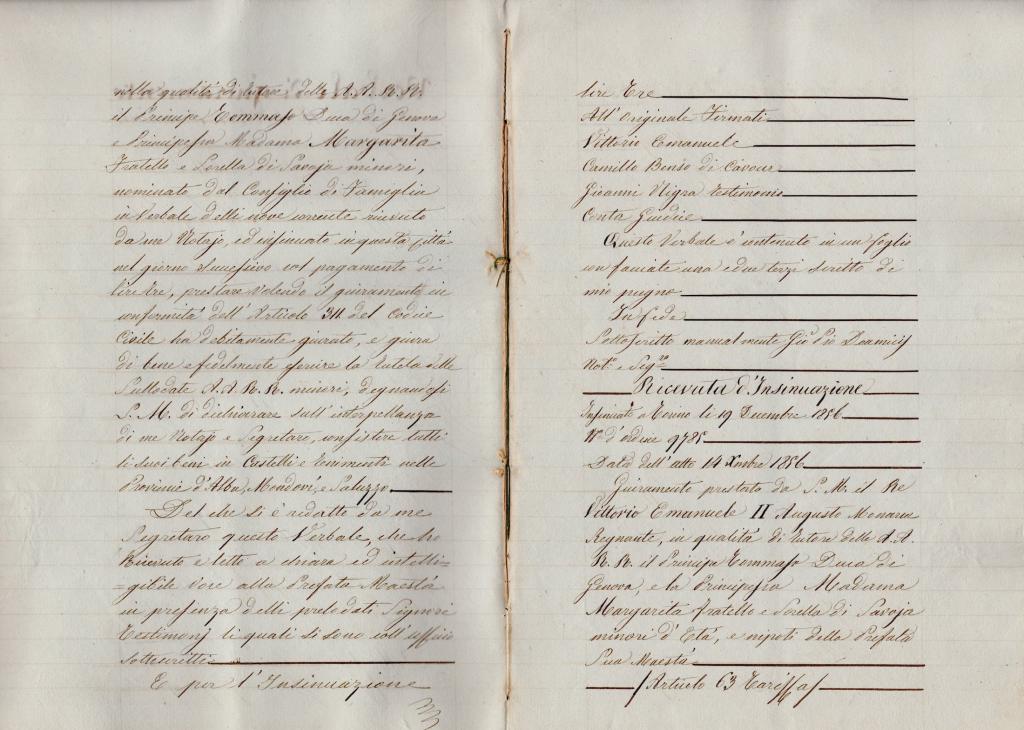 nella qualità di tutore delle A.A. R.R.
il Principe Tommaso Duca di Genova
e Principessa Madama Margarita
Fratello e Sorella di Savoja minori,
nominato dal Consiglio di Famiglia
in Verbale delli nove corrente ricevuto
da me Notajo, ed insinuato in questa Città
nel giorno successivo col pagamento di
lire tre, prestare volendo il giuramento in
conformità dell'Articolo 311 del Codice
Civile ha debitamente giurato, e giura
di bene e fedelmente gerire la tutela delle
Sullodate A.A. R.R. minori, degnandosi
S. M. di dichiarare sull'interpellanza
di me Notajo e Segretaro, consistere tutti
li suoi beni in Castelli e tenimenti nelle
Provincie d'Alba, Mondovì, e Saluzzo
Del che si è redatto da me
Segretaro questo Verbale, che ho
Ricevuto e letto a chiara ed intelli=
=gibile voce alla Prefata Maestà
in presenza delli prelodati Signori
Testimonj li quali si sono coll'uffizio
sottoscritti
E per l'Insinuazione
lire Tre
All'Originale Firmati
Vittorio Emanuele
Camillo Benso di Cavour
Gioanni Nigra testimonio
Conta Giudice
Questo Verbale è contenuto in un foglio
con facciate una e due terzi scritto di
mio pugno
In fede
Sottoscritto manualmente Gio. Deamicis
Not.o e Seg.ro
Ricevuta d'Insinuazione
Insinuato a Torino li 19 Dicembre 1856
N.o d'ordine 9785
Data dell'atto 14 Xmbre 1856
Giuramento prestato da S. M. il Re
Vittorio Emanuele II Augusto Monarca
Regnante, in qualità di Tutore delle A.A.
R.R. il Principe Tommaso Duca di
Genova, e la Principessa Madama
Margarita fratello e Sorella di Savoja
minori d'Età, e nipoti della Prefata
Sua Maestà
/Articolo 63 Tariffa/